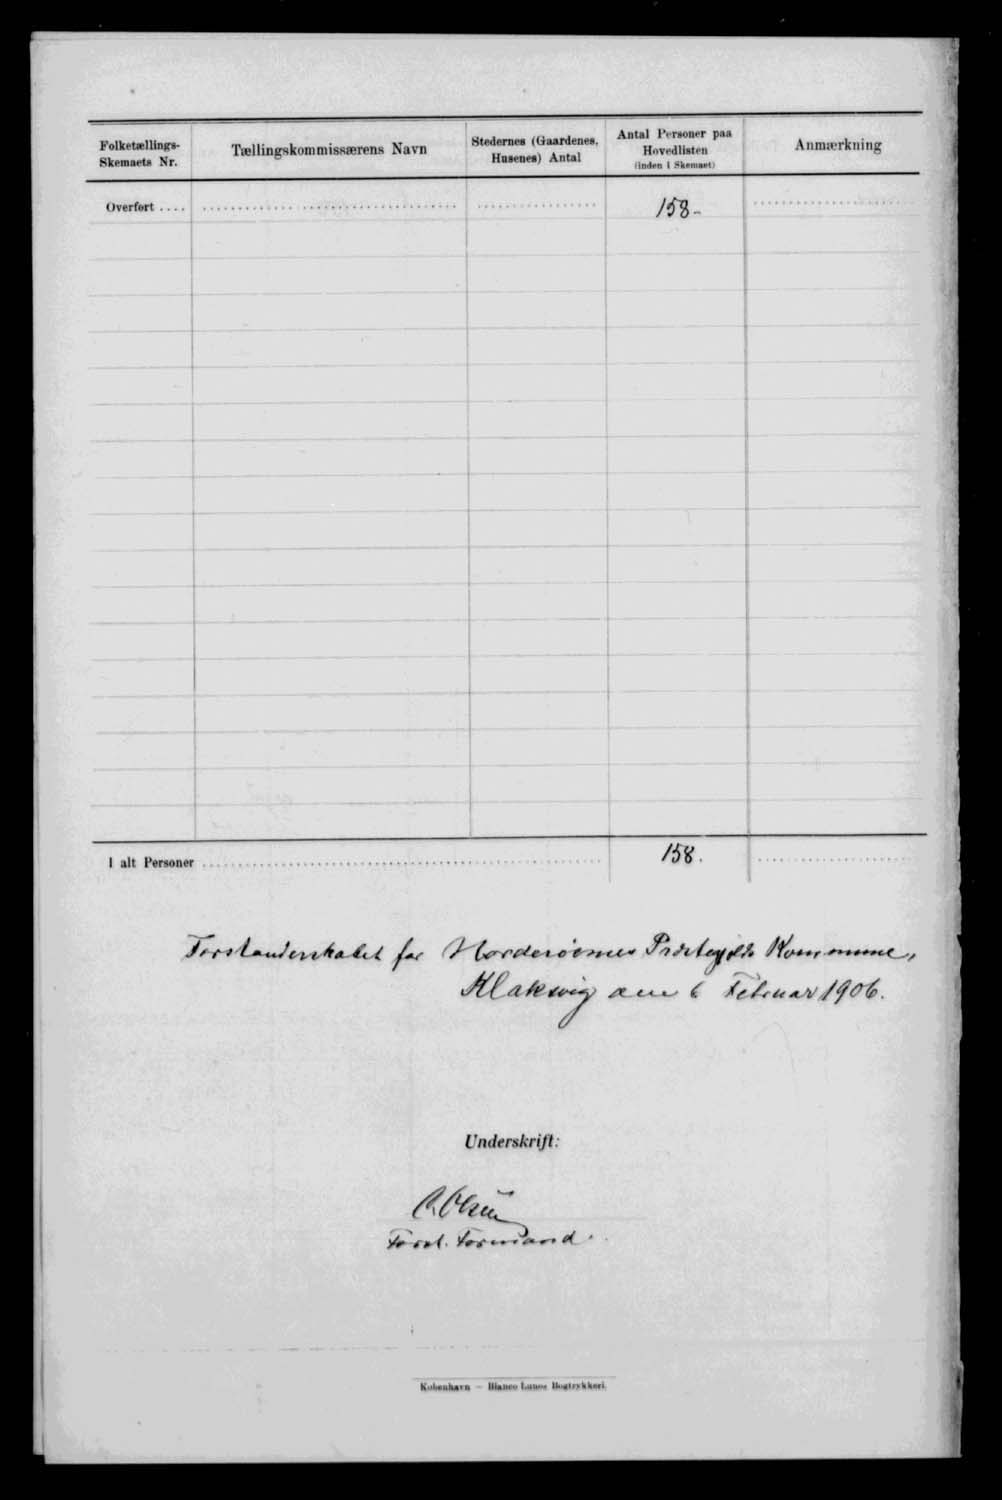 Folketællings-
Skemaets Nr.
Tællingskommissærens Navn
Stedernes (Gaardenes,
Husenes) Antal
Antal Personer paa
Hovedlisten
(inden i Skemaet)
Anmærkning
Overført .... 158-
I alt Personer 158.
Forstanderskabet for Norderöernes Præstegjelds Kommune,
Klaksvig den 6 Februar 1906.
Underskrift:
Olsen
Forst. Formand.
København – Bianco Lunos Bogtrykkeri.